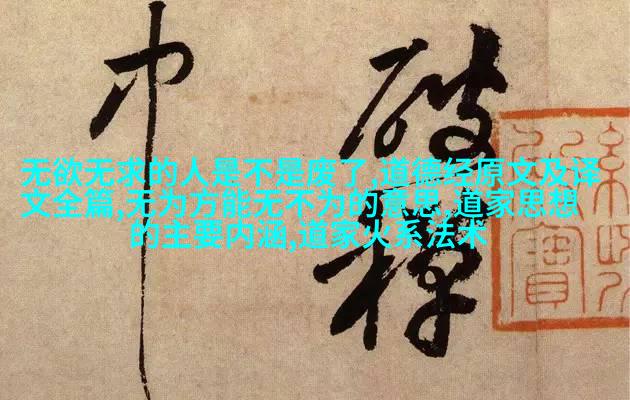 破
无欲无求的人是不是废了,道德经原文及译
文全篇,无为方能无不为的意思,道家思想
的主要内涵,道家火系法术